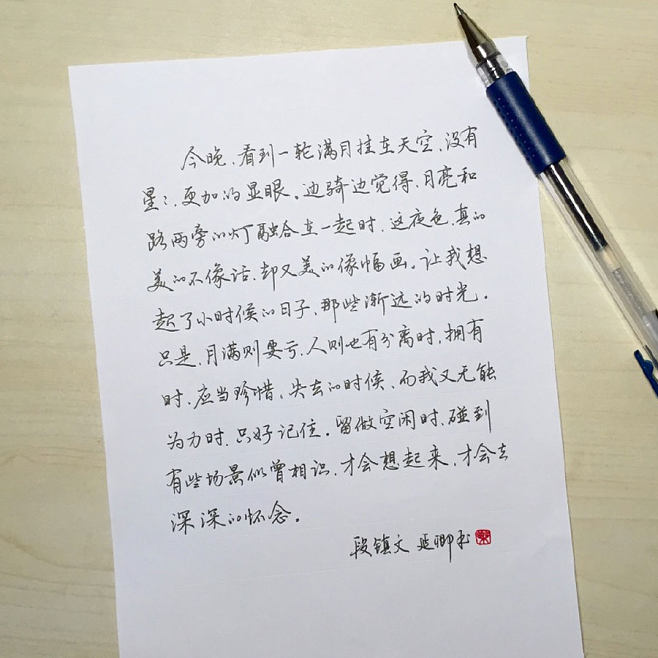 今晚，看到一轮满月挂在天空，没有
星星，更加的显眼。边骑边觉得，月亮和
路两旁的灯融合在一起时，这夜色，真的
美的不像话，却又美的像幅画。让我想
起了小时候的日子，那些渐远的时光。
只是，月满则要亏，人则也有分离时，拥有
时，应当珍惜，失去的时候，而我又无能
为力时，只好记住。留做空闲时，碰到
有些场景似曾相识，才会想起来，才会去
深深的怀念。
段镇文 延卿书